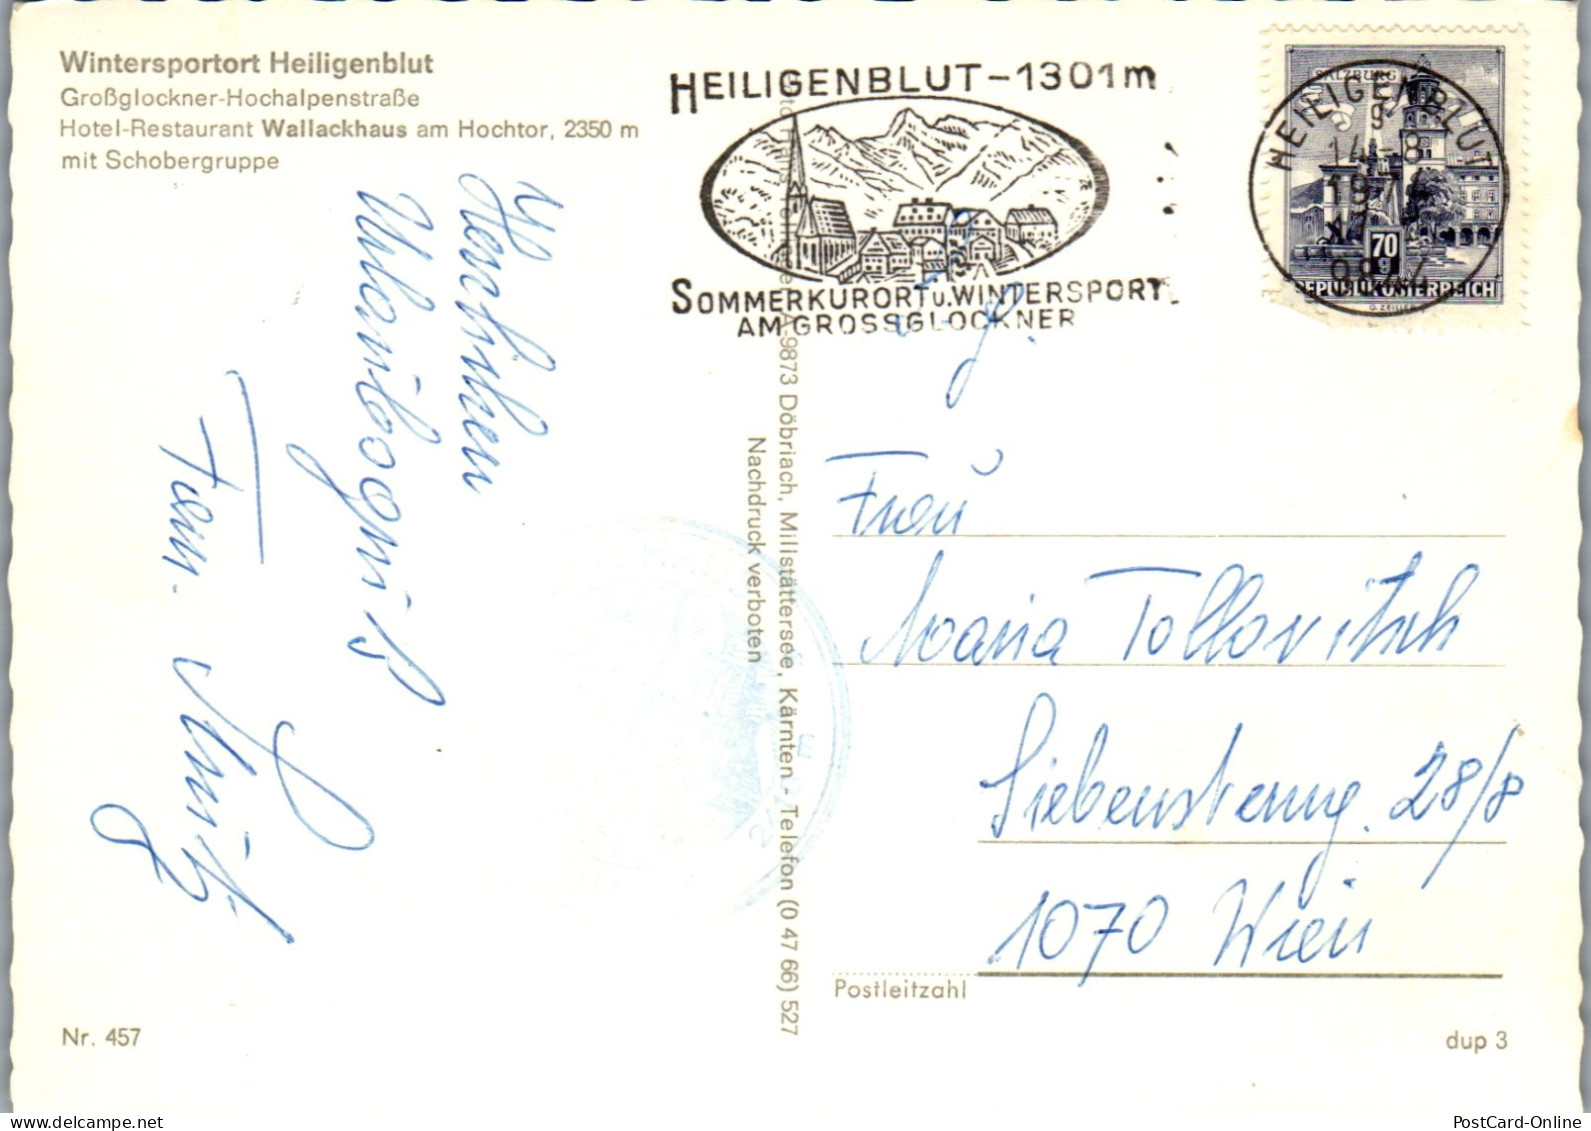 Wintersportort Heiligenblut
Großglockner-Hochalpenstraße
Hotel-Restaurant Wallackhaus am Hochtor, 2350 m
mit Schobergruppe
HEILIGENBLUT-1301m
SOMMERKURORT u. WINTERSPORT
AM GROSSGLOCKNER
SALZBURG
70
g
REPUBLIK ÖSTERREICH
HEILIGENBLUT
14-8
197
Urlaubsgruß
Fam.
A-9873 Döbriach, Millstättersee, Kärnten - Telefon (0 47 66) 527
Nachdruck verboten
Frau
Maria Tollovitsch
Siebensterng. 28/8
1070 Wien
Postleitzahl
Nr. 457
dup 3
PostCard-Online